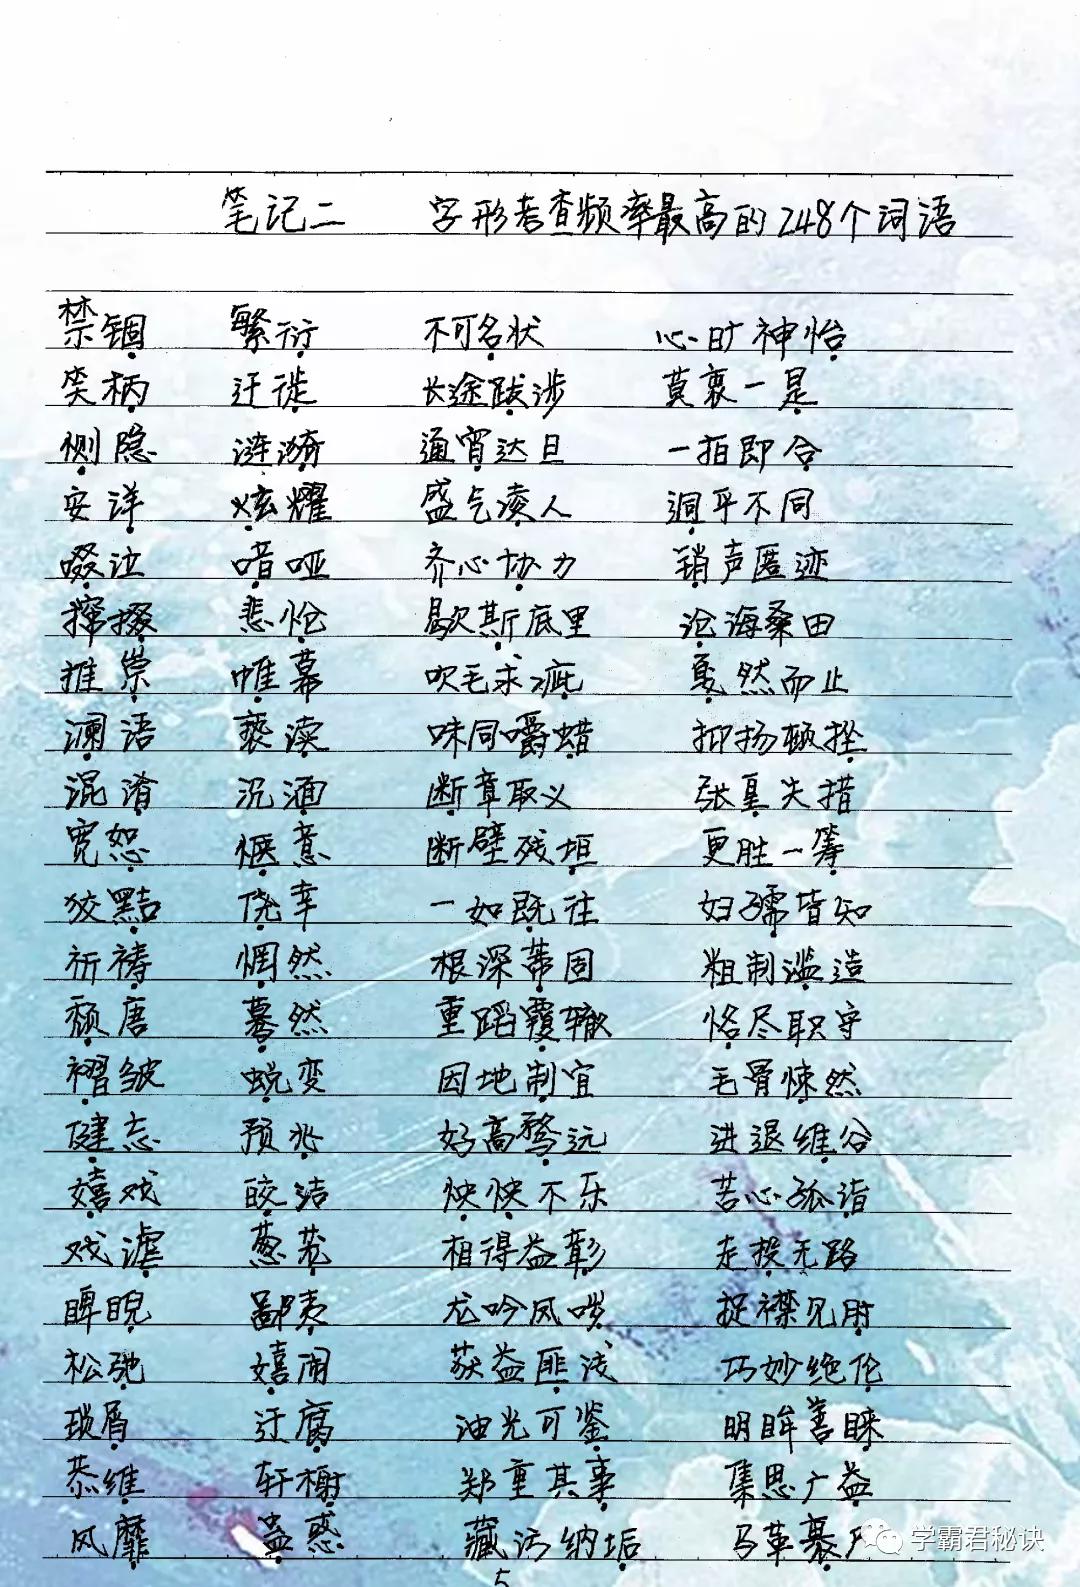 笔记二 字形考查频率最高的248个词语
禁锢 繁衍 不可名状 心旷神怡
笑柄 迁徙 长途跋涉 莫衷一是
恻隐 涟漪 通宵达旦 一拍即合
安详 炫耀 盛气凌人 迥乎不同
啜泣 喑哑 齐心协力 销声匿迹
撺掇 悲怆 歇斯底里 沧海桑田
推崇 帷幕 吹毛求疵 戛然而止
澜语 亵渎 味同嚼蜡 抑扬顿挫
混淆 沉湎 断章取义 张皇失措
宽恕 惬意 断壁残垣 更胜一筹
狡黠 侥幸 一如既往 妇孺皆知
祈祷 惘然 根深蒂固 粗制滥造
颓唐 蓦然 重蹈覆辙 恪尽职守
褶皱 蜕变 因地制宜 毛骨悚然
健忘 预兆 好高骛远 进退维谷
嬉戏 皎洁 怏怏不乐 苦心孤诣
戏谑 葱茏 相得益彰 走投无路
睥睨 鄙夷 龙吟凤哕 捉襟见肘
松弛 嬉闹 获益匪浅 巧妙绝伦
琐屑 迂腐 油光可鉴 明眸善睐
恭维 轩榭 郑重其事 集思广益
风靡 蛊惑 藏污纳垢 马革裹尸
5
学霸君秘诀